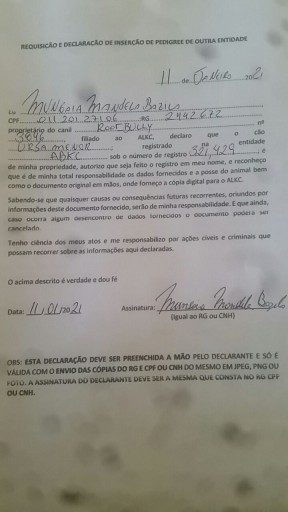 REQUISIÇÃO E DECLARAÇÃO DE INSERÇÃO DE PEDIGREE DE OUTRA ENTIDADE
11 de JANEIRO 2021
Eu
CPF RG
proprietário do canil Root BULLY nº
filiado ao ALKC, declaro que o cão
URSA MENOR registrado na entidade
ABKC sob o número de registro e
de minha propriedade, autorizo que seja feito o registro em meu nome, e reconheço
que é de minha total responsabilidade os dados fornecidos e a posse do animal bem
como o documento original em mãos, onde forneço a cópia digital para o ALKC.
Sabendo-se que quaisquer causas ou consequências futuras recorrentes, oriundos por
informações deste documento fornecido, serão de minha responsabilidade. E que ainda,
caso ocorra algum desencontro de dados fornecidos o documento poderá ser
cancelado.
Tenho ciência dos meus atos e me responsabilizo por ações cíveis e criminais que
possam recorrer sobre as informações aqui declaradas.
O acima descrito é verdade e dou fé
Data: 11/01/2021 Assinatura:
(Igual ao RG ou CNH)
OBS: ESTA DECLARAÇÃO DEVE SER PREENCHIDA A MÃO PELO DECLARANTE E SÓ É
VÁLIDA COM O ENVIO DAS CÓPIAS DO RG E CPF OU CNH DO MESMO EM JPEG, PNG OU
FOTO. A ASSINATURA DO DECLARANTE DEVE SER A MESMA QUE CONSTA NO RG CPF
OU CNH.